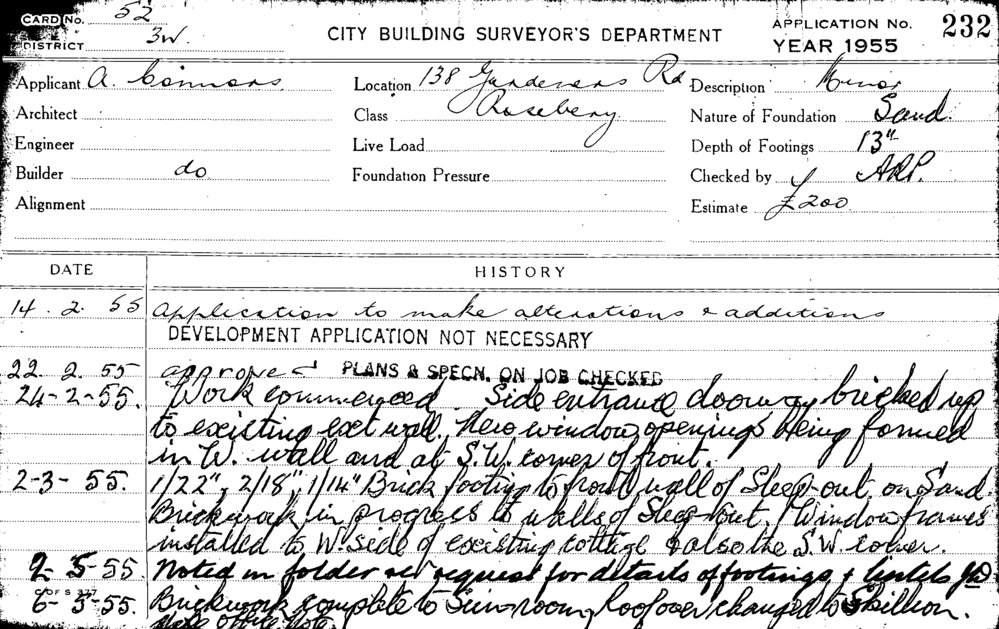 CARD No. 52
DISTRICT 3W.
CITY BUILDING SURVEYOR'S DEPARTMENT
APPLICATION No. 232
YEAR 1955
Applicant A. Connors.
Location 138 Gardeners Rd
Description Minor
Architect
Class Rosebery
Nature of Foundation Sand.
Engineer
Live Load
Depth of Footings 13"
Builder do
Foundation Pressure
Checked by ARP.
Alignment
Estimate £200
DATE
HISTORY
14. 2. 55 Application to make alterations & additions
DEVELOPMENT APPLICATION NOT NECESSARY
22. 2. 55 approved PLANS & SPECN. ON JOB CHECKED
24-2-55. Work commenced. Side entrance doorway bricked up
to existing ext wall. New window openings being formed
in W. wall and at S.W. corner of front.
2-3-55. 1/22", 2/18", 1/14" Brick footing to front wall of Sleep-out on Sand
Brickwork in progress to walls of Sleep-out. Window frames
installed to W. side of existing cottage & also the S.W. corner.
2-5-55. Noted in folder re request for details of footings & lintels
C OF S 327
6-5-55. Brickwork complete to Sunroom, Roof over changed to Skillion.